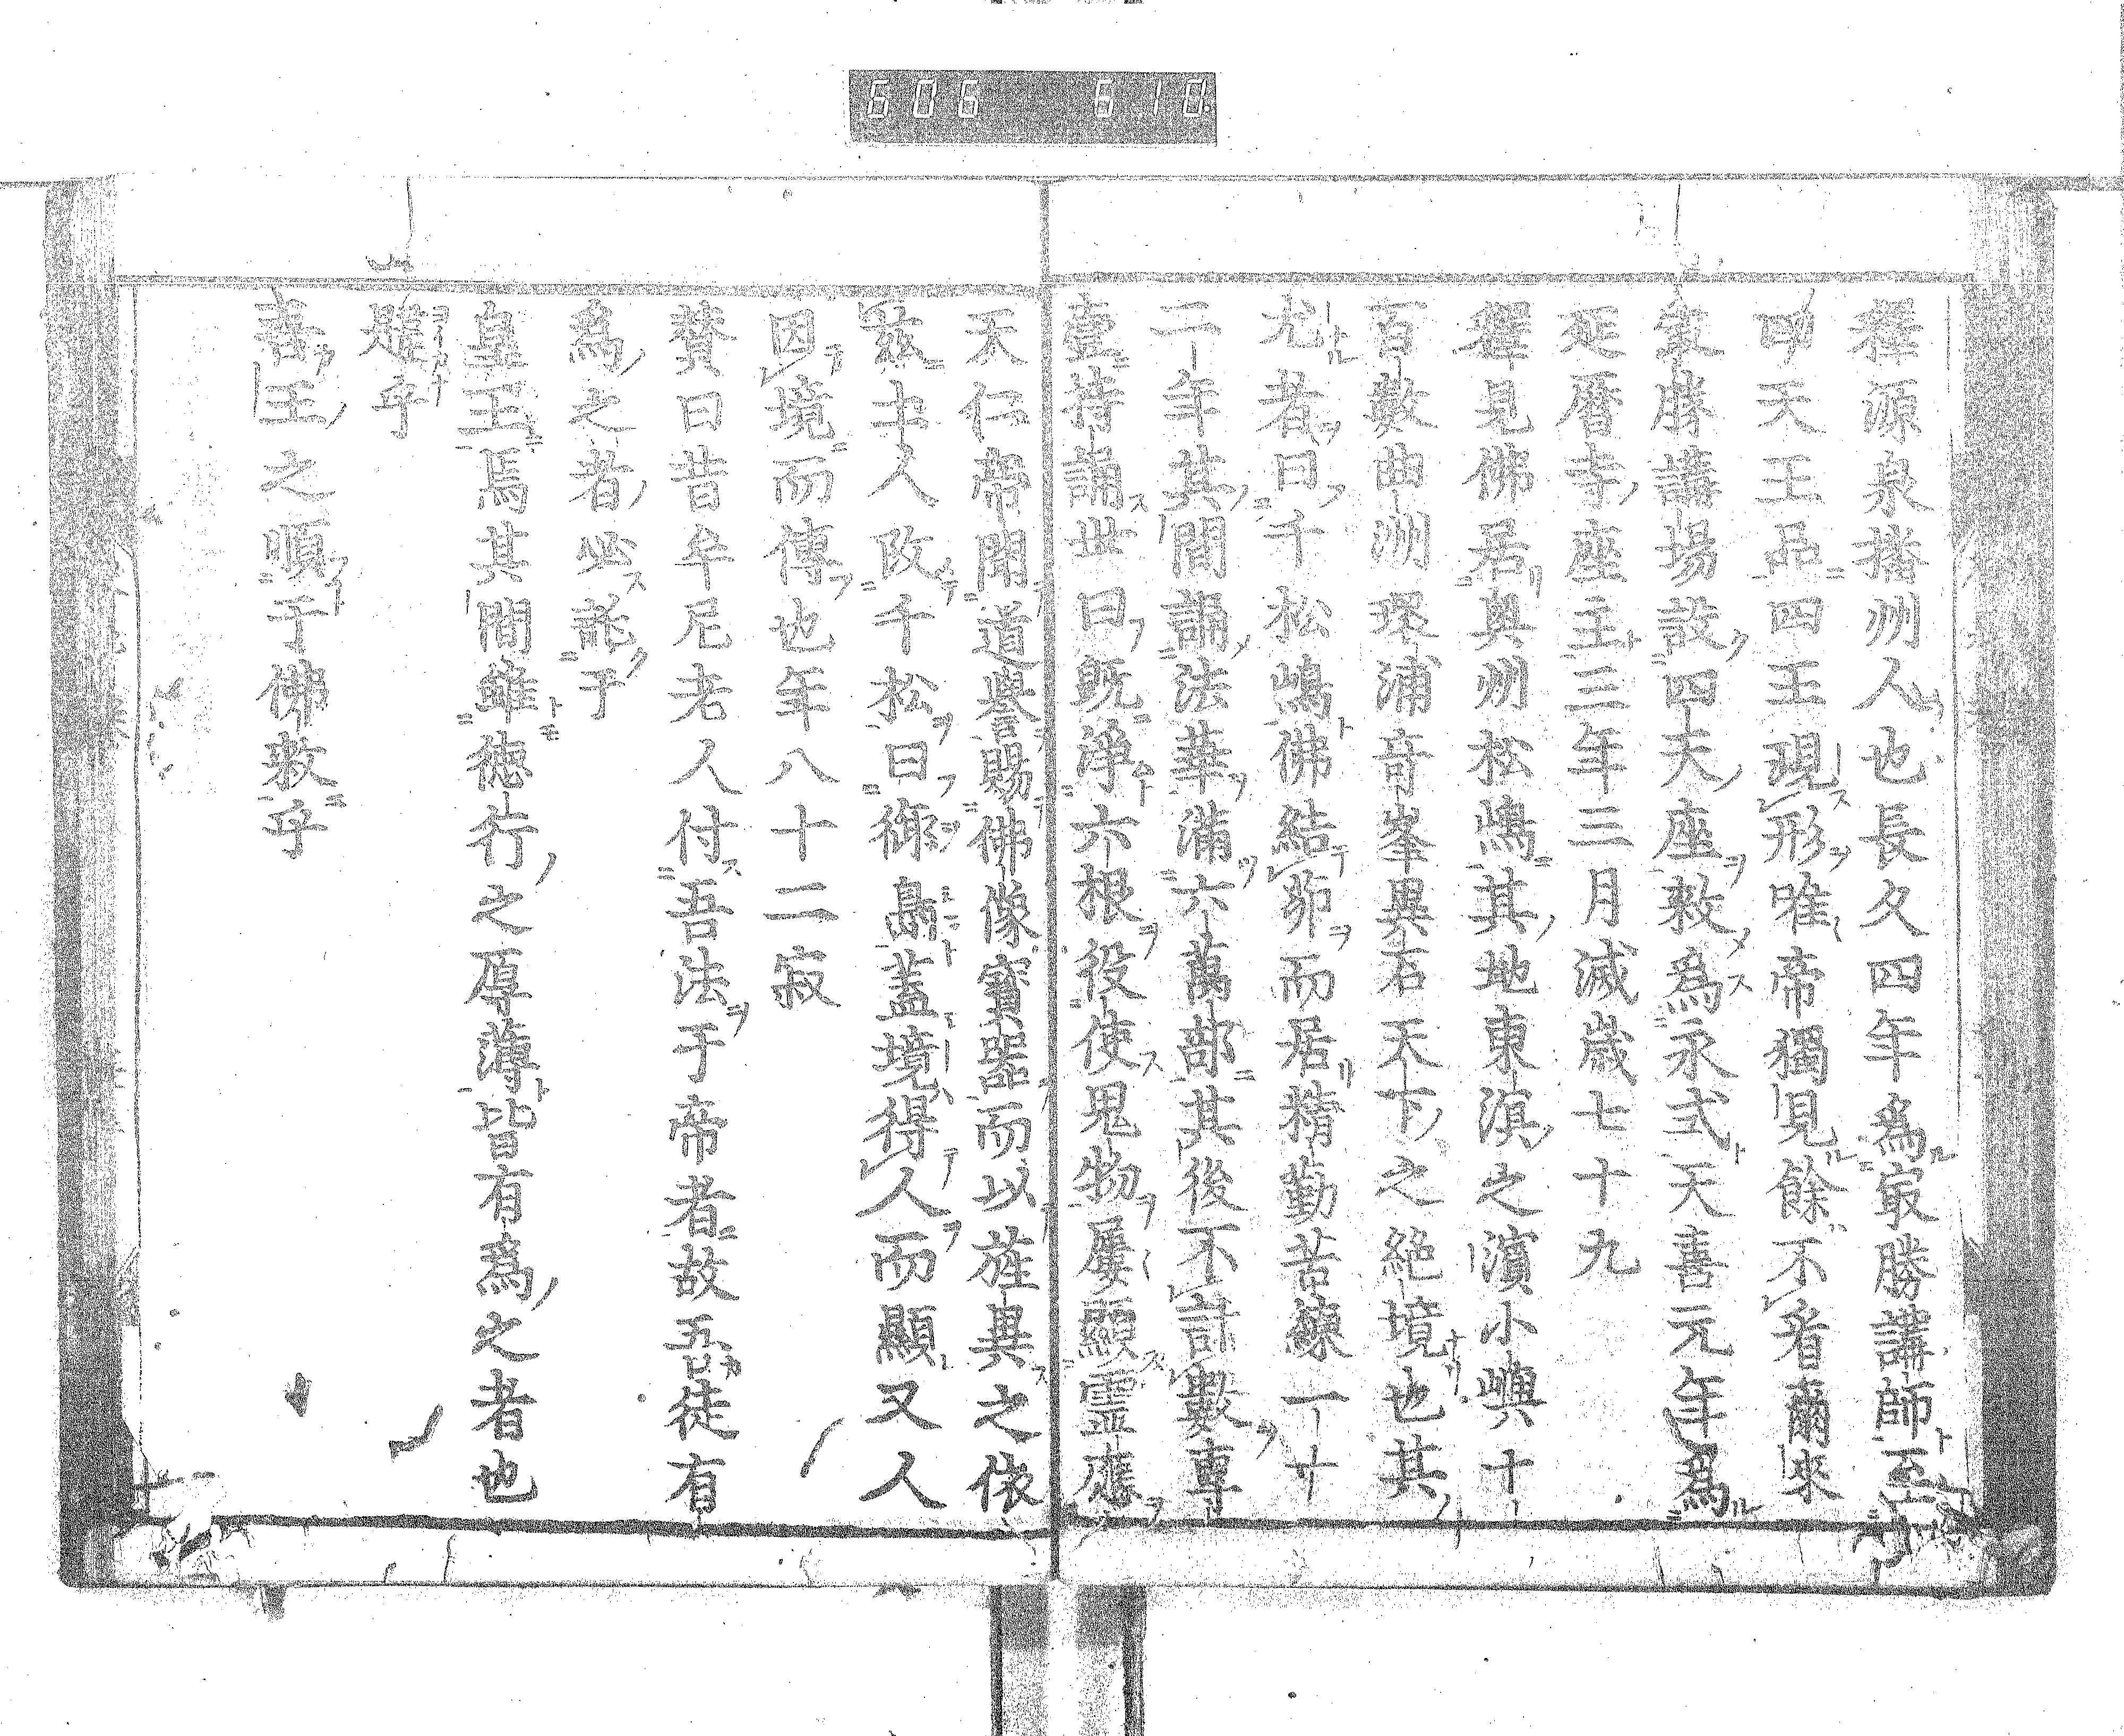 606 610
釋源泉播州人也長久四年爲冣勝講師至
叩天王品四王現形唯帝獨見餘不看爾來
冣勝講場設四天座敕爲永式天喜元年爲
延曆寺座主三年三月滅歲七十九
釋見佛居奥州松嶋其地東溟之濱小嶼十
百數曲洲環浦奇峯異石天下之絕境也其
尤者曰千松嶋佛結茆而居精勤苦練一十
二年其間誦法華滿六萬部其後不計數專
壹持誦世曰既淨六根役使鬼物屢顯靈應
天仁帝聞道譽賜佛像寶器而以旌異之依
茲土人改千松曰御嶋蓋境得人而顯又人
因境而傳也年八十二寂
賛曰昔牟尼老人付吾法于帝者故吾徒有
爲之者必託于
皇王焉其間雖德行之厚薄皆有爲之者也
韙乎
王之順于佛敕乎